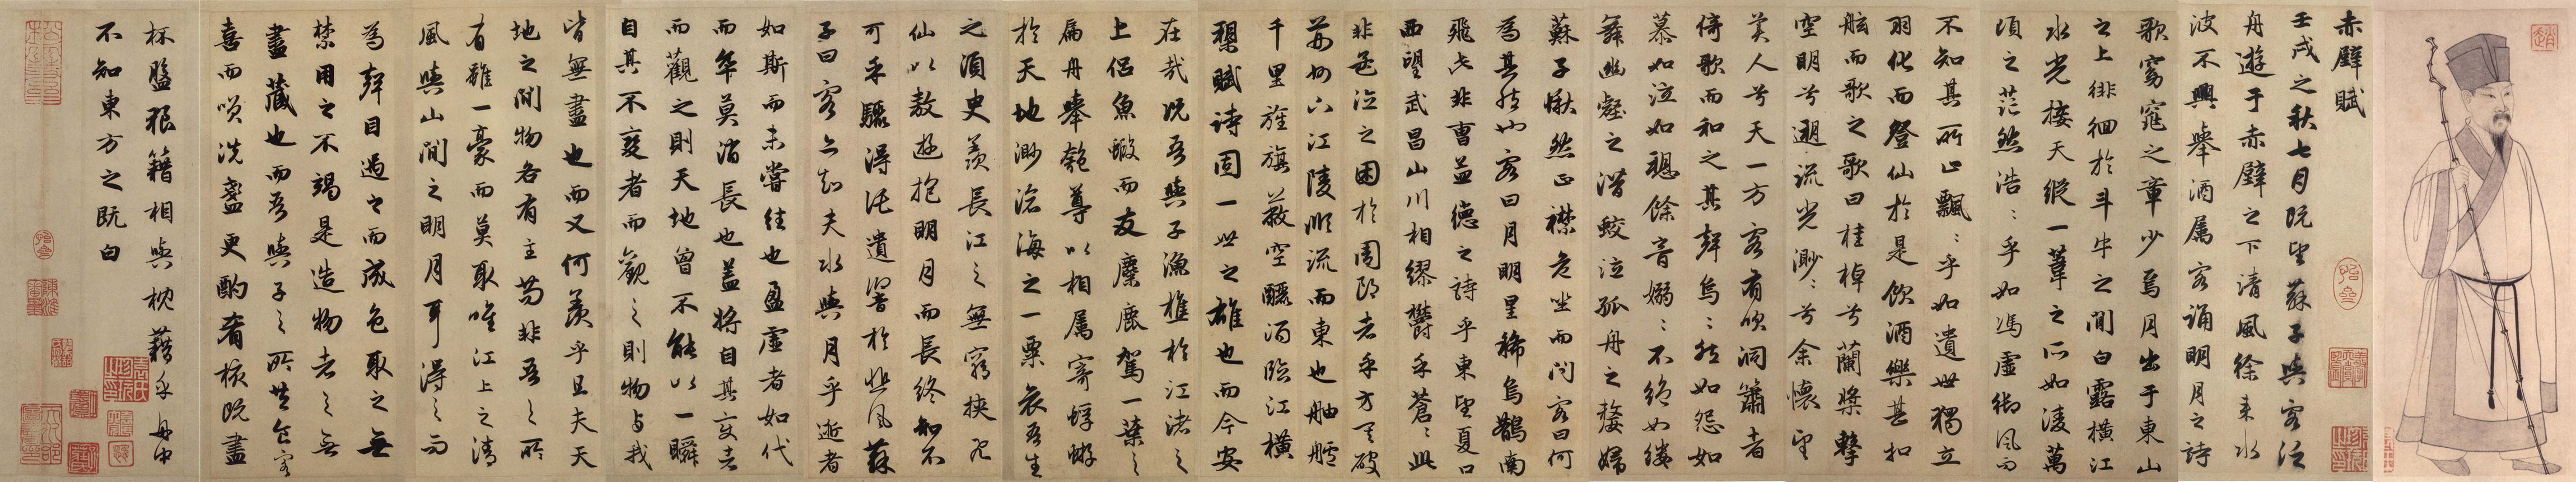 赤壁賦
壬戌之秋七月既望蘇子與客泛
舟遊于赤壁之下清風徐来水
波不興舉酒属客誦明月之詩
歌窈窕之章少焉月出于東山
之上徘徊於斗牛之間白露橫江
水光接天縱一葦之所如凌萬
頃之茫然浩〻乎如馮虛御風而
不知其所止飄〻乎如遺世獨立
羽化而登仙於是飲酒樂甚扣
舷而歌之歌曰桂棹兮蘭槳擊
空明兮遡流光渺〻兮余懷望
美人兮天一方客有吹洞簫者
倚歌而和之其聲烏〻然如怨如
慕如泣如愬餘音嫋〻不絕如縷
舞幽壑之潛蛟泣孤舟之嫠婦
蘇子愀然正襟危坐而問客曰何
為其然也客曰月明星稀烏鵲南
飛此非曹孟德之詩乎東望夏口
西望武昌山川相繆鬱乎蒼〻此
非孟德之困於周郎者乎方其破
荊州下江陵順流而東也舳艫
千里旌旗蔽空釃酒臨江橫
槊賦詩固一世之雄也而今安
在哉況吾與子漁樵於江渚之
上侶魚蝦而友麋鹿駕一葉之
扁舟舉匏尊以相属寄蜉蝣
於天地渺滄海之一粟哀吾生
之須臾羨長江之無窮挾飛
仙以敖遊抱明月而長終知不
可乎驟得託遺響於悲風蘇
子曰客亦知夫水與月乎逝者
如斯而未嘗往也盈虛者如代
而卒莫消長也蓋將自其變者
而觀之則天地曾不能以一瞬
自其不變者而觀之則物与我
皆無盡也而又何羨乎且夫天
地之間物各有主苟非吾之所
有雖一豪而莫取唯江上之清
風與山間之明月耳得之而
為聲目遇之而成色取之無
禁用之不竭是造物者之無
盡藏也而吾與子之所共食客
喜而咲洗盞更酌肴核既盡
杯盤狼籍相與枕藉乎舟中
不知東方之既白